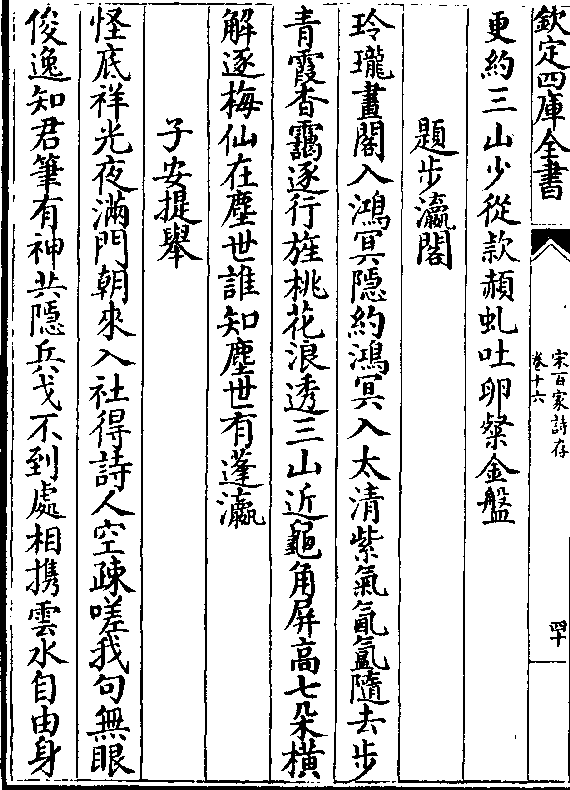 欽定四庫全書
宋百家詩存
卷十六
罕
更約三山少從款赬虬吐卵粲金盤
題步瀛閣
玲瓏畫閣入鴻冥隱約鴻冥入太清紫氣氤氳隨去步
青霞香靄逐行旌桃花浪透三山近龜角屏高七朵橫
解逐梅仙在塵世誰知塵世有蓬瀛
子安提舉
怪底祥光夜滿門朝來入社得詩人空疎嗟我句無眼
俊逸知君筆有神共隱兵戈不到處相携雲水自由身